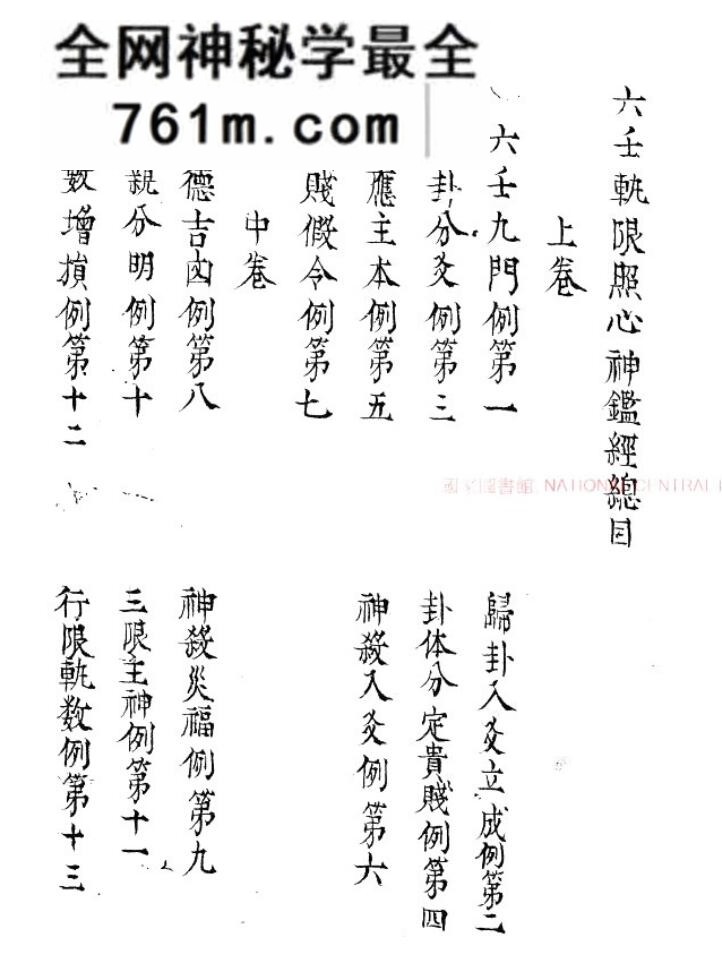 全网神秘学最全
761m.com
六壬軌限照心神鑑經總目
上卷
六壬九門例第一
歸卦入爻立成例第二
卦分爻例第三
卦体分定貴賤例第四
應主本例第五
神殺入爻例第六
賤假令例第七
中卷
德吉凶例第八
神殺災福例第九
親分明例第十
三限主神例第十一
数增損例第十二
行限軌数例第十三
國家圖書館 NATIONAL CENTRAL